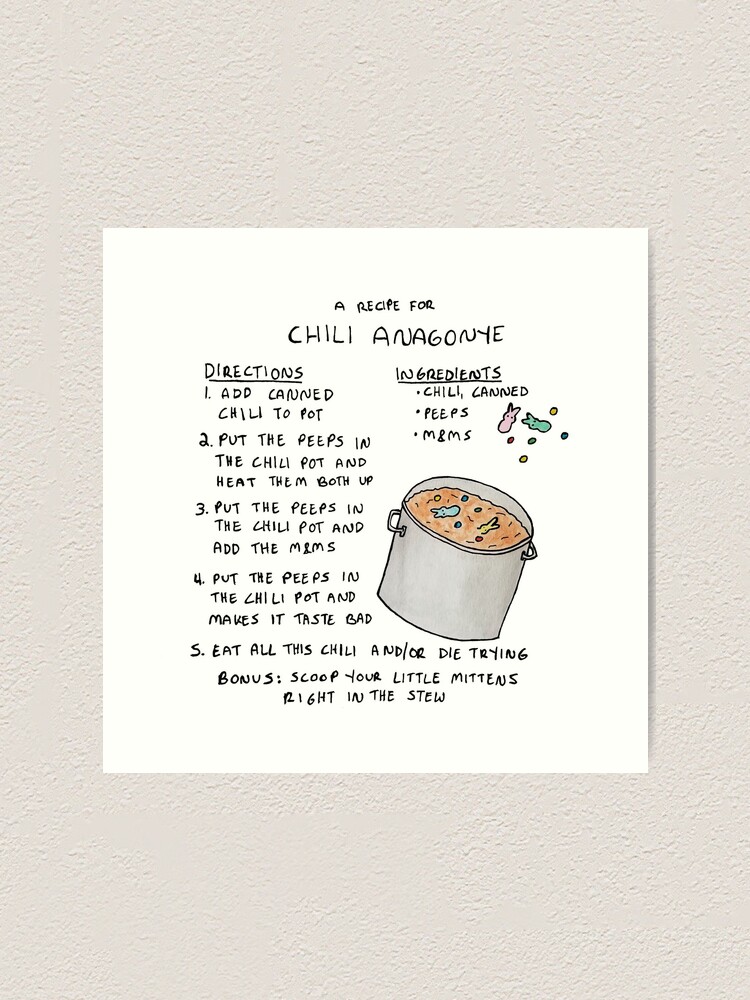 A RECIPE FOR
CHILI ANAGONYE
DIRECTIONS
1. ADD CANNED
CHILI TO POT
2. PUT THE PEEPS IN
THE CHILI POT AND
HEAT THEM BOTH UP
3. PUT THE PEEPS IN
THE CHILI POT AND
ADD THE M&MS
4. PUT THE PEEPS IN
THE CHILI POT AND
MAKES IT TASTE BAD
5. EAT ALL THIS CHILI AND/OR DIE TRYING
BONUS: SCOOP YOUR LITTLE MITTENS
RIGHT IN THE STEW
INGREDIENTS
• CHILI, CANNED
• PEEPS
• M&MS